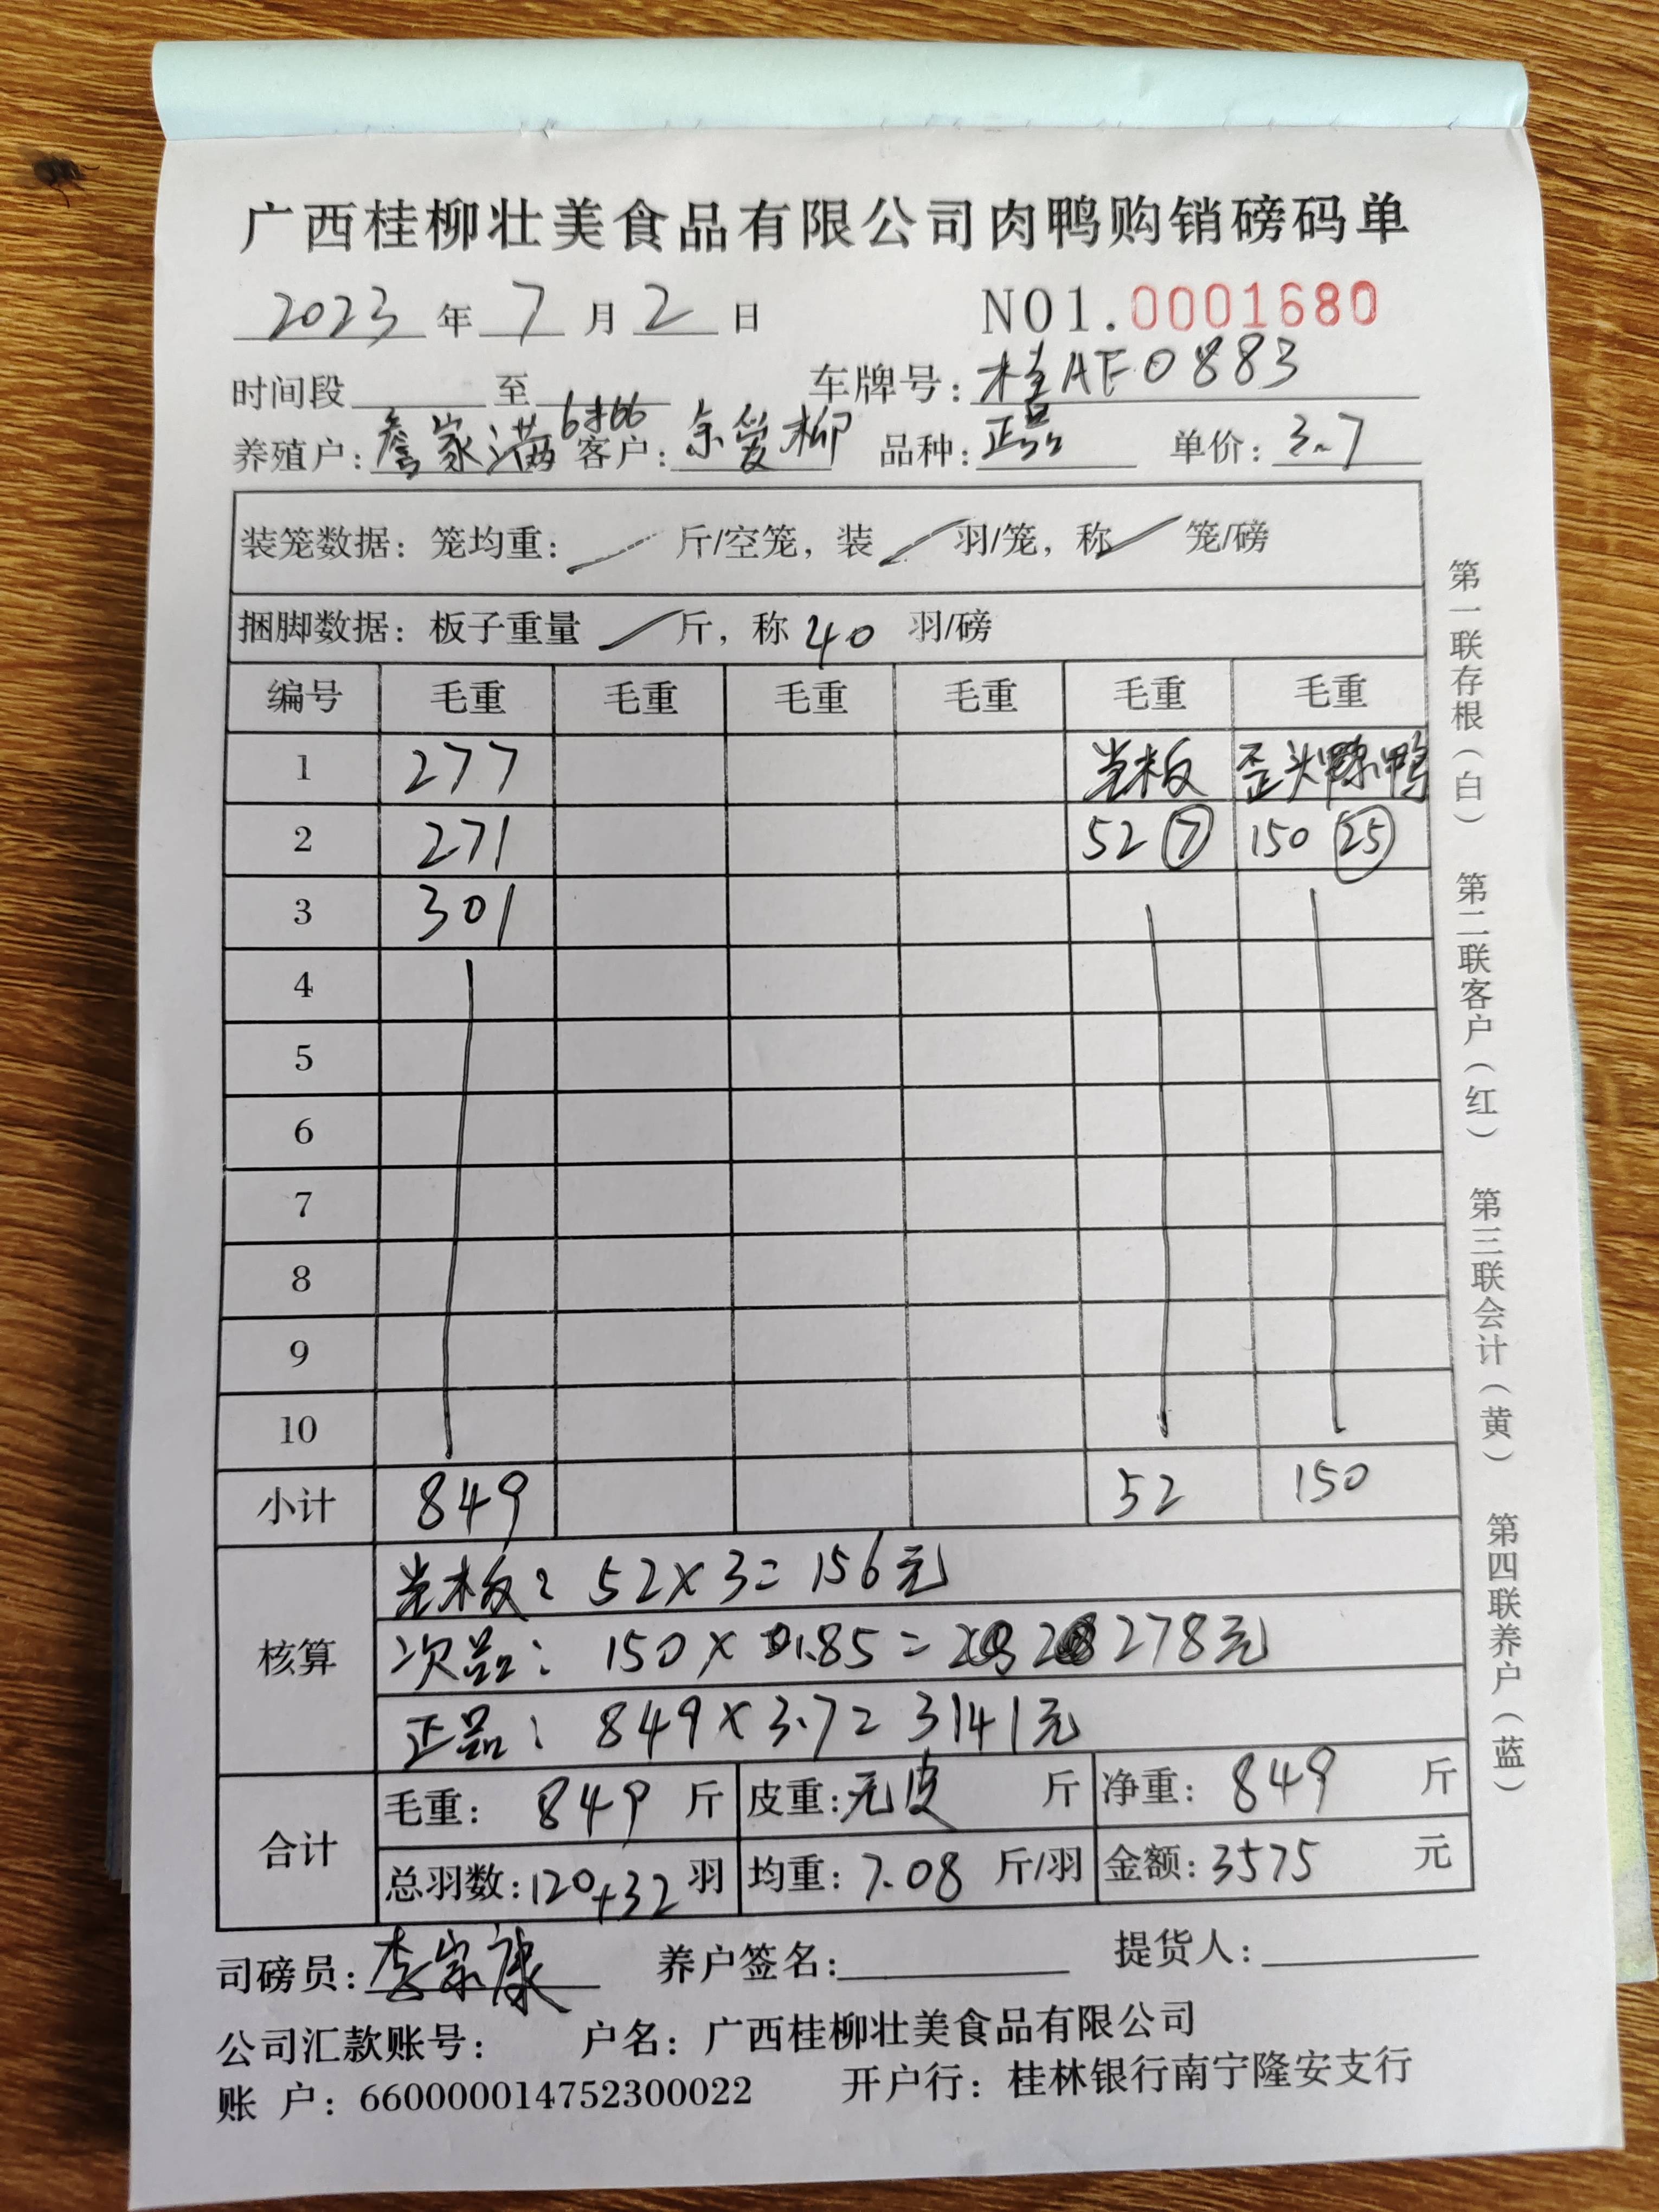 广西桂柳壮美食品有限公司肉鸭购销磅码单
2023年7月2日 NO1.0001680
时间段 至 车牌号:桂AF0883
养殖户:詹家满 客户:余爱柳 品种:正品 单价:3.7
装笼数据:笼均重: 斤/空笼,装 羽/笼,称 笼/磅
捆脚数据:板子重量 斤,称 40 羽/磅
编号 毛重 毛重 毛重 毛重 毛重 毛重
1 277 光板 歪头 鸭
2 271 52 ⑦ 150 ㉕
3 301
4
5
6
7
8
9
10
小计 849 52 150
核算
光板:52×3=156元
次品:150×1.85= 278元
正品:849×3.7=3141元
合计
毛重:849斤 皮重:无皮 斤 净重:849 斤
总羽数:120+32羽 均重:7.08 斤/羽 金额:3575 元
司磅员:李宗康 养户签名: 提货人:
公司汇款账号: 户名:广西桂柳壮美食品有限公司
账 户:660000014752300022 开户行:桂林银行南宁隆安支行
第一联存根(白) 第二联客户(红) 第三联会计(黄) 第四联养户(蓝)